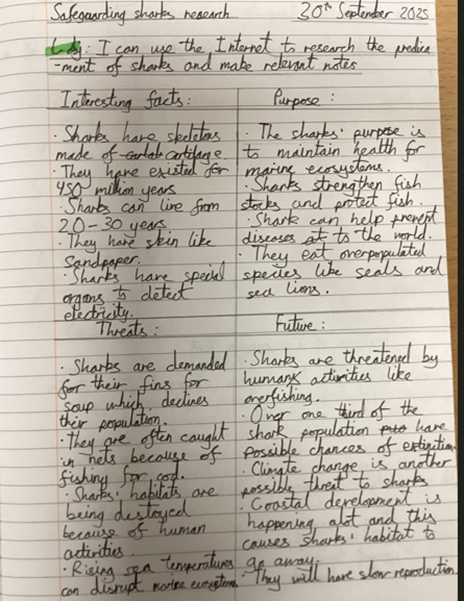 Safeguarding sharks research 30th September 2025
L.O: I can use the Internet to research the predica
-ment of sharks and make relevant notes
Interesting facts:
· Sharks have skeletons
made of cartilage.
· They have existed for
450 million years
· Sharks can live from
20-30 years.
· They have skin like
Sandpaper.
· Sharks have special
organs to detect
electricity.
Purpose:
· The sharks' purpose is
to maintain health for
marine ecosystems.
· Sharks strengthen fish
stocks and protect fish.
· Shark can help prevent
diseases to the world.
· They eat overpopulated
species like seals and
sea lions.
Threats:
· Sharks are demanded
for their fins for
soup which declines
their population.
· They are often caught
in nets because of
fishing for cod.
· Sharks' habitats are
being destroyed
because of human
activities.
· Rising sea temperatures
can disrupt marine ecosystems
Future:
· Sharks are threatened by
humans activities like
overfishing.
· Over one third of the
shark population have
possible chances of extinction.
· Climate change is another
possible threat to sharks
· Coastal development is
happening alot and this
causes sharks' habitat to
go away.
· They will have slow reproduction.